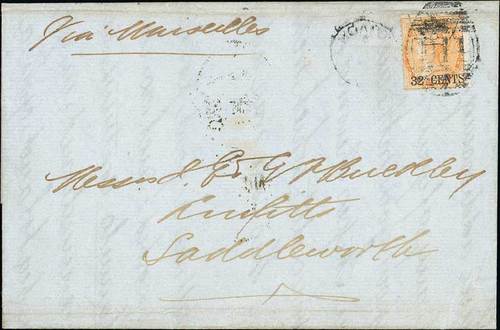 Via Marseilles
32 CENTS
Messrs J. F. & G A Buckley
Saddleworth